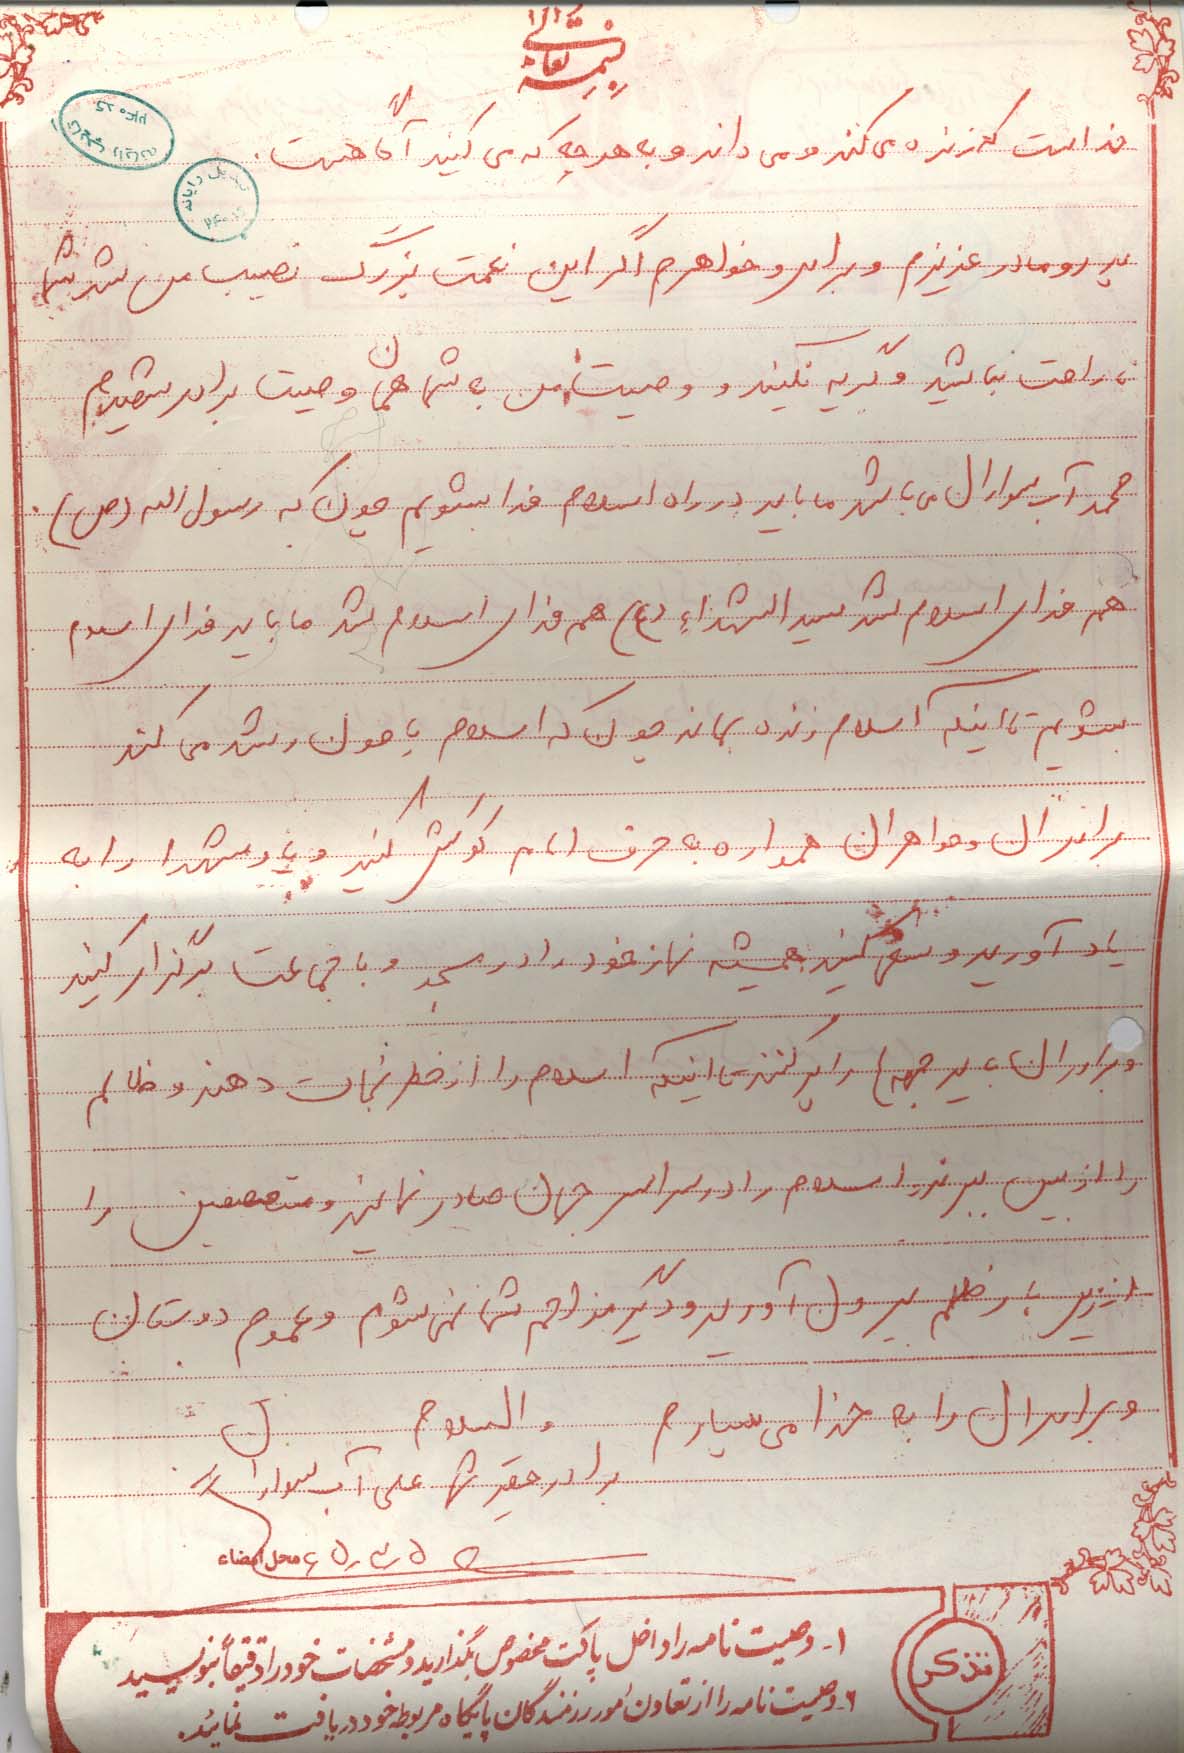 بسمه تعالی
خداست که زنده می کند و می داند و به هر چه که می کنید آگاه هست.
پدر و مادر عزیزم و برادر و خواهرم اگر این نعمت بزرگ نصیب من شد شما
ناراحت نباشید و گریه نکنید و وصیت من به شما همان وصیت برادر شهیدم
محمد آب سواران می باشد ما باید در راه اسلام فدا بشویم چون که رسول الله (ص)
هم فدای اسلام شد سید الشهداء (ع) هم فدای اسلام شد ما باید فدای اسلام
بشویم تا اینکه اسلام زنده بماند چون که اسلام با خون رشد می کند
برادران و خواهران همواره به حرف امام گوش کنید و یاد شهدا را به
یاد آورید و سعی کنید همیشه نماز خود را در مسجد و با جماعت برگزار کنید
و برادران باید جبهه را پر کنند تا اینکه اسلام را از خطر نجات دهند و ظالم
را از بین ببرند اسلام را در سراسر جهان صادر نمائید و مستضعفین را
از زیر بار ظلم بیرون آورید و دیگر مزاحم شما نمی شوم و عموم دوستان
و برادران را به خدا می سپارم والسلام
برادر حقیر شما علی آب سواران
محل امضاء
تذکر
۱- وصیت نامه را داخل پاکت مخصوص بگذارید و مشخصات خود را دقیقاً بنویسید
۲- وصیت نامه را از تعاون امور رزمندگان پایگاه مربوطه خود دریافت نمائید.